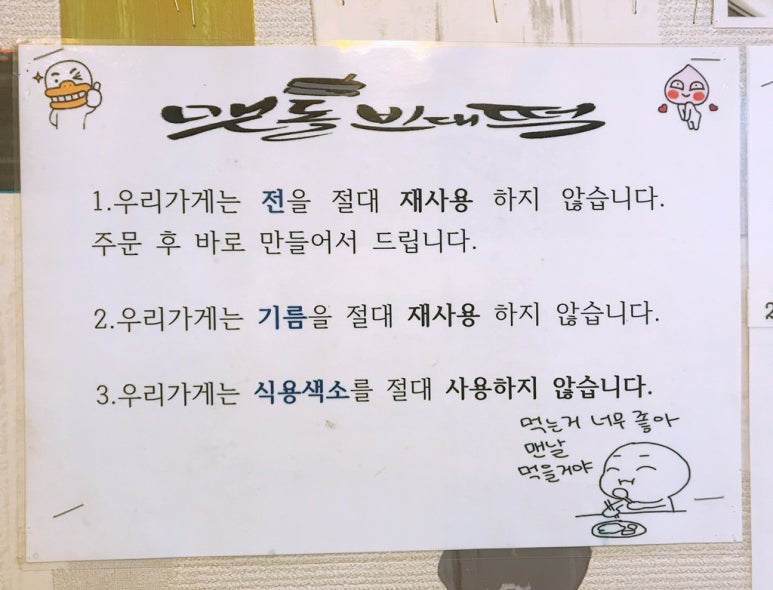 맷돌 빈대떡
1.우리가게는 전을 절대 재사용 하지 않습니다.
주문 후 바로 만들어서 드립니다.
2.우리가게는 기름을 절대 재사용 하지 않습니다.
3.우리가게는 식용색소를 절대 사용하지 않습니다.
먹는거 너무 좋아
맨날
먹을거야
2